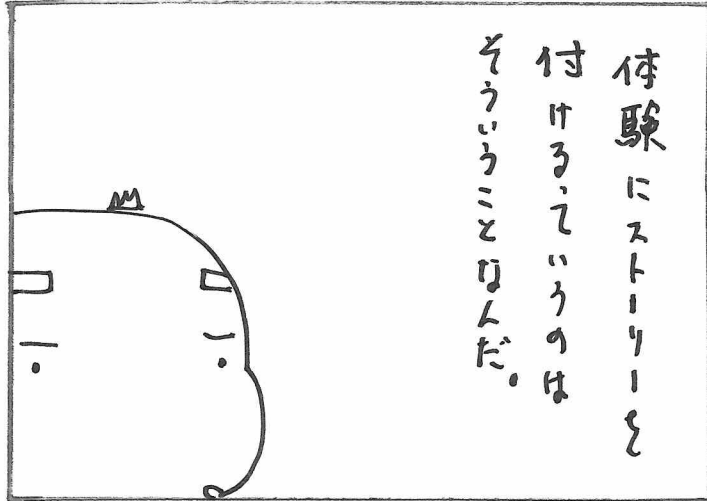 体験にストーリーを
付けるっていうのは
そういうことなんだ。